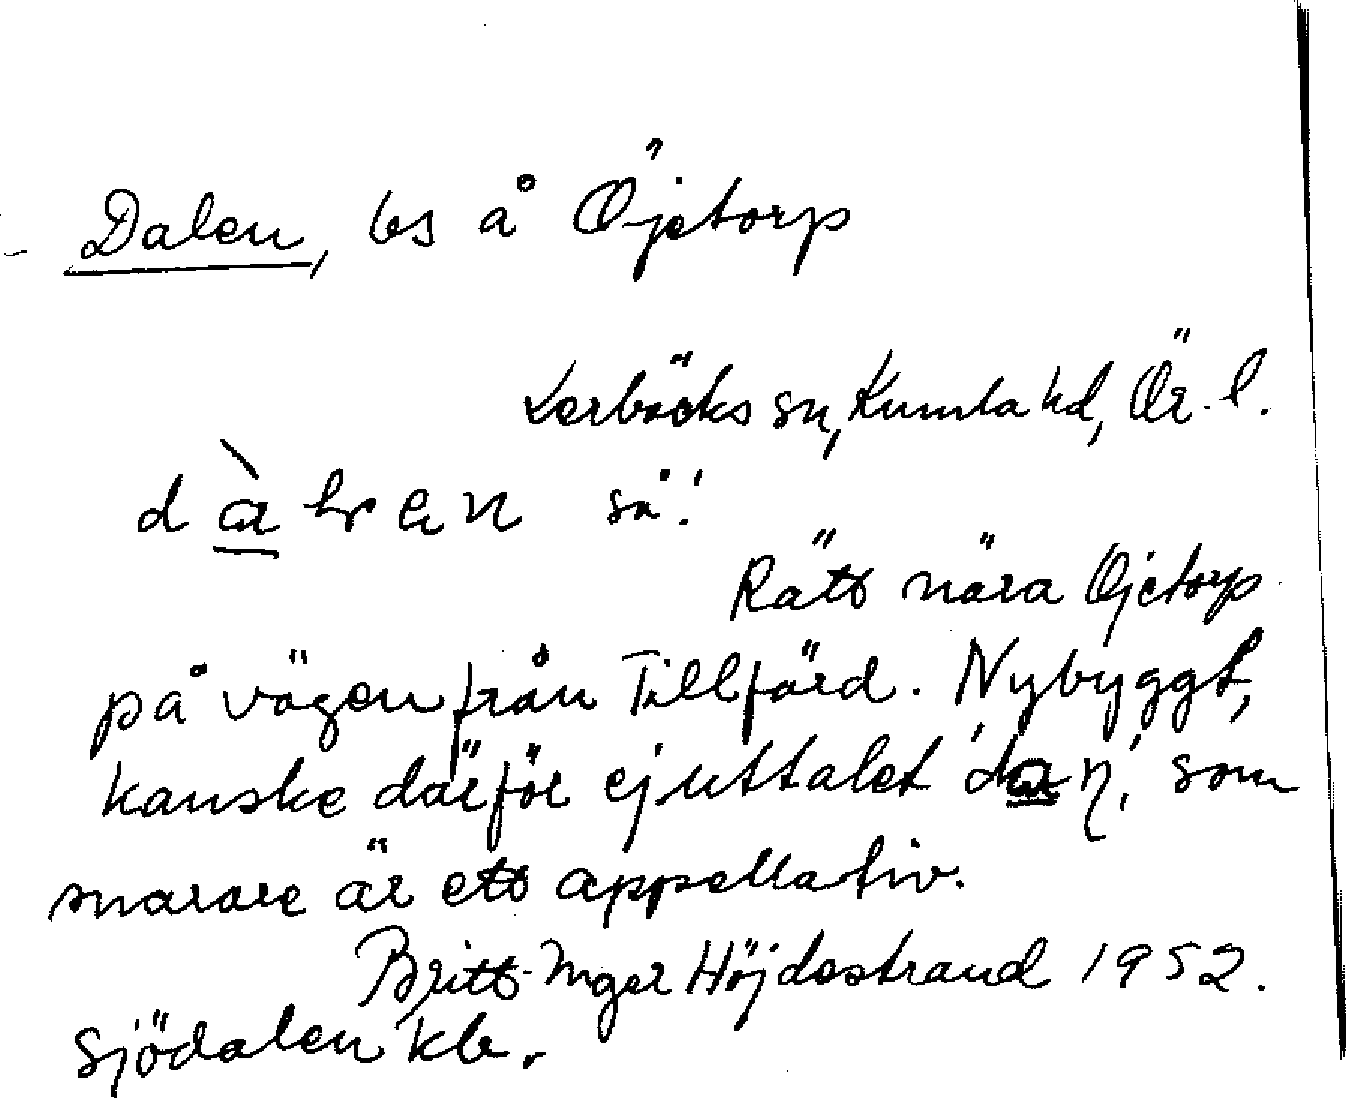 Dalen, bs å Öjetorp
Lerbäcks sn, Kumla hd, Ör. l.
Rätt nära Öjetorp
på vägen från Tillfärd. Nybyggt,
kanske därför ej uttalet 'daṇ', som
snarare är ett appellativ.
Britt-Inger Höjdestrand 1952.
Sjödalen kb.